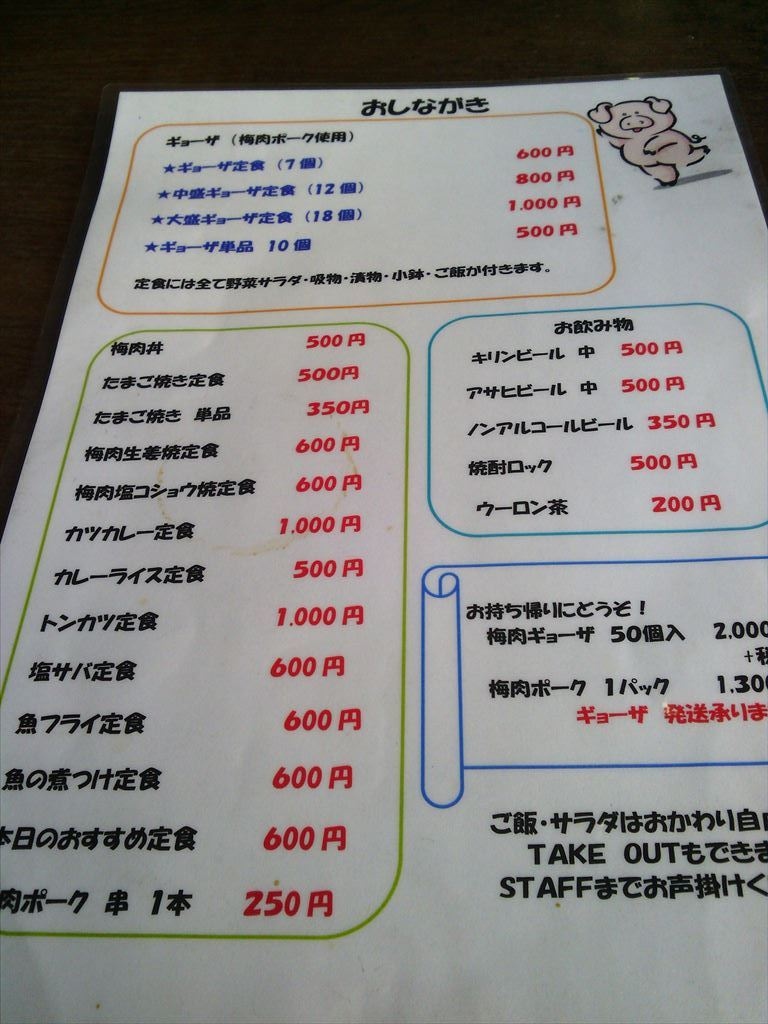 おしながき
ギョーザ （梅肉ポーク使用）
★ギョーザ定食（7個） 600円
★中盛ギョーザ定食（12個） 800円
★大盛ギョーザ定食（18個） 1.000円
★ギョーザ単品 10個 500円
定食には全て野菜サラダ・吸物・漬物・小鉢・ご飯が付きます。
梅肉丼 500円
たまご焼き定食 500円
たまご焼き 単品 350円
梅肉生姜焼定食 600円
梅肉塩コショウ焼定食 600円
カツカレー定食 1.000円
カレーライス定食 500円
トンカツ定食 1.000円
塩サバ定食 600円
魚フライ定食 600円
魚の煮つけ定食 600円
本日のおすすめ定食 600円
肉ポーク 串 1本 250円
お飲み物
キリンビール 中 500円
アサヒビール 中 500円
ノンアルコールビール 350円
焼酎ロック 500円
ウーロン茶 200円
お持ち帰りにどうぞ！
梅肉ギョーザ 50個入 2.000
+税
梅肉ポーク 1パック 1.300
ギョーザ 発送承りま
ご飯・サラダはおかわり自由
TAKE OUTもできま
STAFFまでお声掛けく